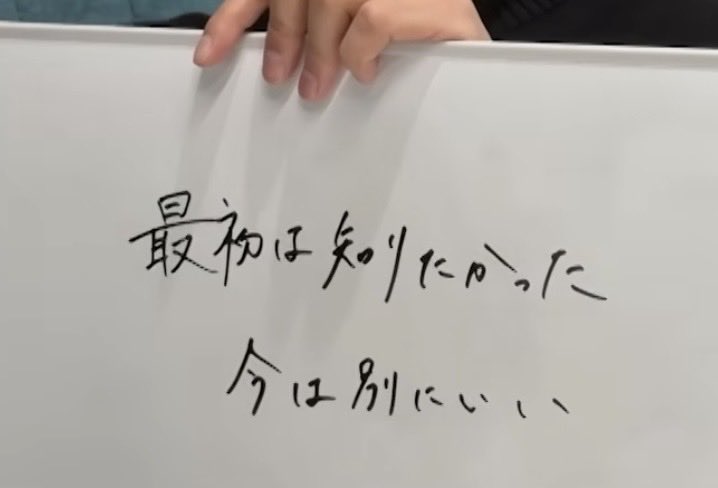 最初は知りたかった
今は別にいい